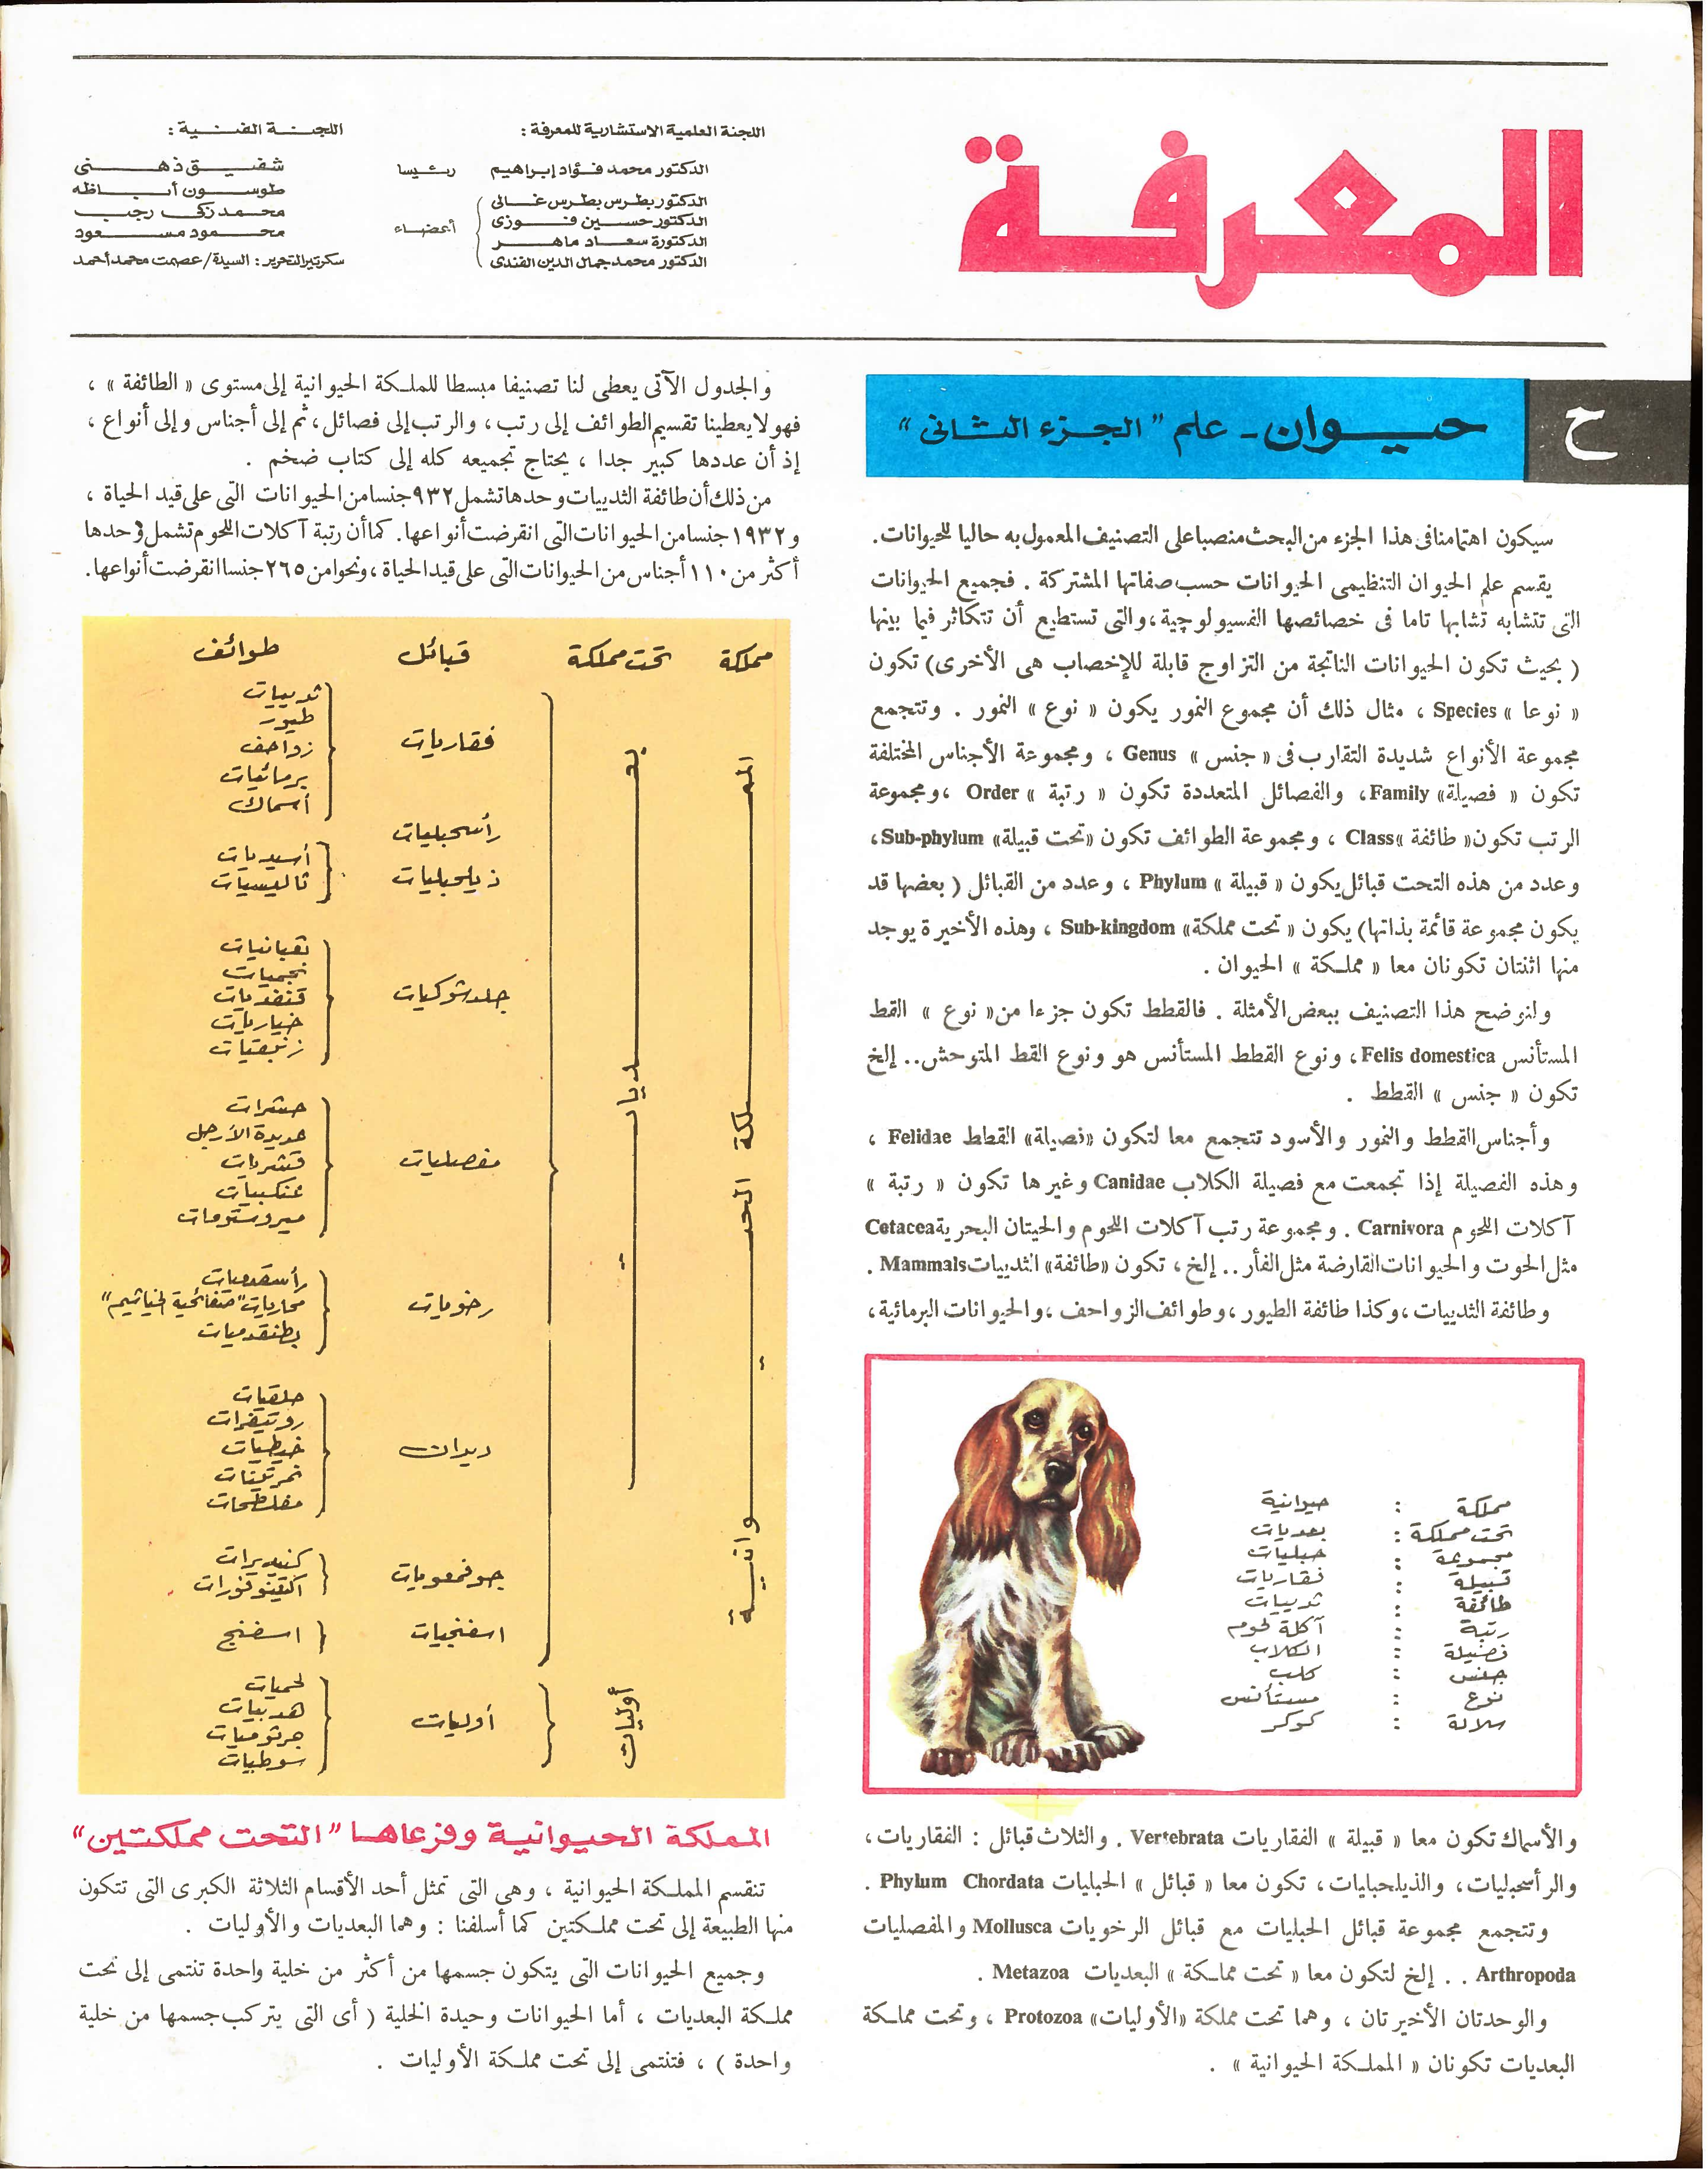 المعرفة
اللجنة العلمية الاستشارية للمعرفة :
الدكتور محمد فؤاد إبراهيم رئيسا
الدكتور بطرس بطرس غالى
الدكتور حسين فوزى
الدكتورة سعاد ماهر
الدكتور محمد جمال الدين الفندى
أعضاء
اللجنة الفنية :
شفيق ذهنى
طوسون أباظه
محمد زكى رجب
محمود مسعود
سكرتير التحرير : السيدة / عصمت محمد أحمد
ح
حيوان - علم "الجزء الثانى"
سيكون اهتمامنا فى هذا الجزء من البحث منصبا على التصنيف المعمول به حاليا للحيوانات .
يقسم علم الحيوان التنظيمى الحيوانات حسب صفاتها المشتركة . فجميع الحيوانات
التى تتشابه تشابها تاما فى خصائصها الفسيولوچية ، والتى تستطيع أن تتكاثر فيما بينها
( بحيث تكون الحيوانات الناتجة من التزاوج قابلة للإخصاب هى الأخرى ) تكون
« نوعا » Species ، مثال ذلك أن مجموع النمور يكون « نوع » النمور . وتتجمع
مجموعة الأنواع شديدة التقارب فى « جنس » Genus ، ومجموعة الأجناس المختلفة
تكون « فصيلة » Family ، والفصائل المتعددة تكون « رتبة » Order ، ومجموعة
الرتب تكون « طائفة » Class ، ومجموعة الطوائف تكون « تحت قبيلة » Sub-phylum ،
وعدد من هذه التحت قبائل يكون « قبيلة » Phylum ، وعدد من القبائل ( بعضها قد
يكون مجموعة قائمة بذاتها ) يكون « تحت مملكة » Sub-kingdom ، وهذه الأخيرة يوجد
منها اثنتان تكونان معا « مملكة » الحيوان .
ولنوضح هذا التصنيف ببعض الأمثلة . فالقطط تكون جزءا من « نوع » القط
المستأنس Felis domestica ، ونوع القطط المستأنس هو ونوع القط المتوحش .. إلخ
تكون « جنس » القطط .
وأجناس القطط والنمور والأسود تتجمع معا لتكون « فصيلة » القطط Felidae ،
وهذه الفصيلة إذا تجمعت مع فصيلة الكلاب Canidae وغيرها تكون « رتبة »
آكلات اللحوم Carnivora . ومجموعة رتب آكلات اللحوم والحيتان البحرية Cetacea
مثل الحوت والحيوانات القارضة مثل الفأر .. إلخ ، تكون « طائفة » الثدييات Mammals .
وطائفة الثدييات ، وكذا طائفة الطيور ، وطوائف الزواحف ، والحيوانات البرمائية ،
مملكة : حيوانية
تحت مملكة : بعديات
مجموعة : حبليات
قبيلة : فقاريات
طائفة : ثدييات
رتبة : آكلة لحوم
فصيلة : الكلاب
جنس : كلب
نوع : مستأنس
سلالة : كوكر
والأسماك تكون معا « قبيلة » الفقاريات Vertebrata . والثلاث قبائل : الفقاريات ،
والرأسحبليات ، والذيلحبليات ، تكون معا « قبائل » الحبليات Phylum Chordata .
وتتجمع مجموعة قبائل الحبليات مع قبائل الرخويات Mollusca والمفصليات
Arthropoda . . إلخ لتكون معا « تحت مملكة » البعديات Metazoa .
والوحدتان الأخيرتان ، وهما تحت مملكة « الأوليات » Protozoa ، وتحت مملكة
البعديات تكونان « المملكة الحيوانية » .
والجدول الآتى يعطى لنا تصنيفا مبسطا للمملكة الحيوانية إلى مستوى « الطائفة » ،
فهو لا يعطينا تقسيم الطوائف إلى رتب ، والرتب إلى فصائل ، ثم إلى أجناس وإلى أنواع ،
إذ أن عددها كبير جدا ، يحتاج تجميعه كله إلى كتاب ضخم .
من ذلك أن طائفة الثدييات وحدها تشمل ٩٣٢ جنسا من الحيوانات التى على قيد الحياة ،
و ١٩٣٢ جنسا من الحيوانات التى انقرضت أنواعها . كما أن رتبة آكلات اللحوم تشمل وحدها
أكثر من ١١٠ أجناس من الحيوانات التى على قيد الحياة ، ونحوا من ٢٦٥ جنسا انقرضت أنواعها .
مملكة تحت مملكة قبائل طوائف
المملكة الحيوانية
بعديات
فقاريات
ثدييات
طيور
زواحف
برمائيات
أسماك
رأسحبليات
ذيلحبليات
أسيديات
ثاليسيات
جلدشوكيات
ثعبانيات
نجميات
قنفديات
خياريات
زنبقيات
مفصليات
حشرات
عديدة الأرجل
قشريات
عنكبيات
ميروستومات
رخويات
رأسقدميات
محاريات "صفائحية الخياشيم"
بطنقدميات
ديدان
حلقيات
روتيفرات
خيطيات
نمرتينات
مفلطحات
جوفمعويات
كنيديرات
أكتينوفورات
اسفنجيات
اسفنج
أوليات
أوليات
لحميات
هدبيات
جرثوميات
سوطيات
المملكة الحيوانية وفرعاها "التحت مملكتين"
تنقسم المملكة الحيوانية ، وهى التى تمثل أحد الأقسام الثلاثة الكبرى التى تتكون
منها الطبيعة إلى تحت مملكتين كما أسلفنا : وهما البعديات والأوليات .
وجميع الحيوانات التى يتكون جسمها من أكثر من خلية واحدة تنتمى إلى تحت
مملكة البعديات ، أما الحيوانات وحيدة الخلية ( أى التى يتركب جسمها من خلية
واحدة ) ، فتنتمى إلى تحت مملكة الأوليات .